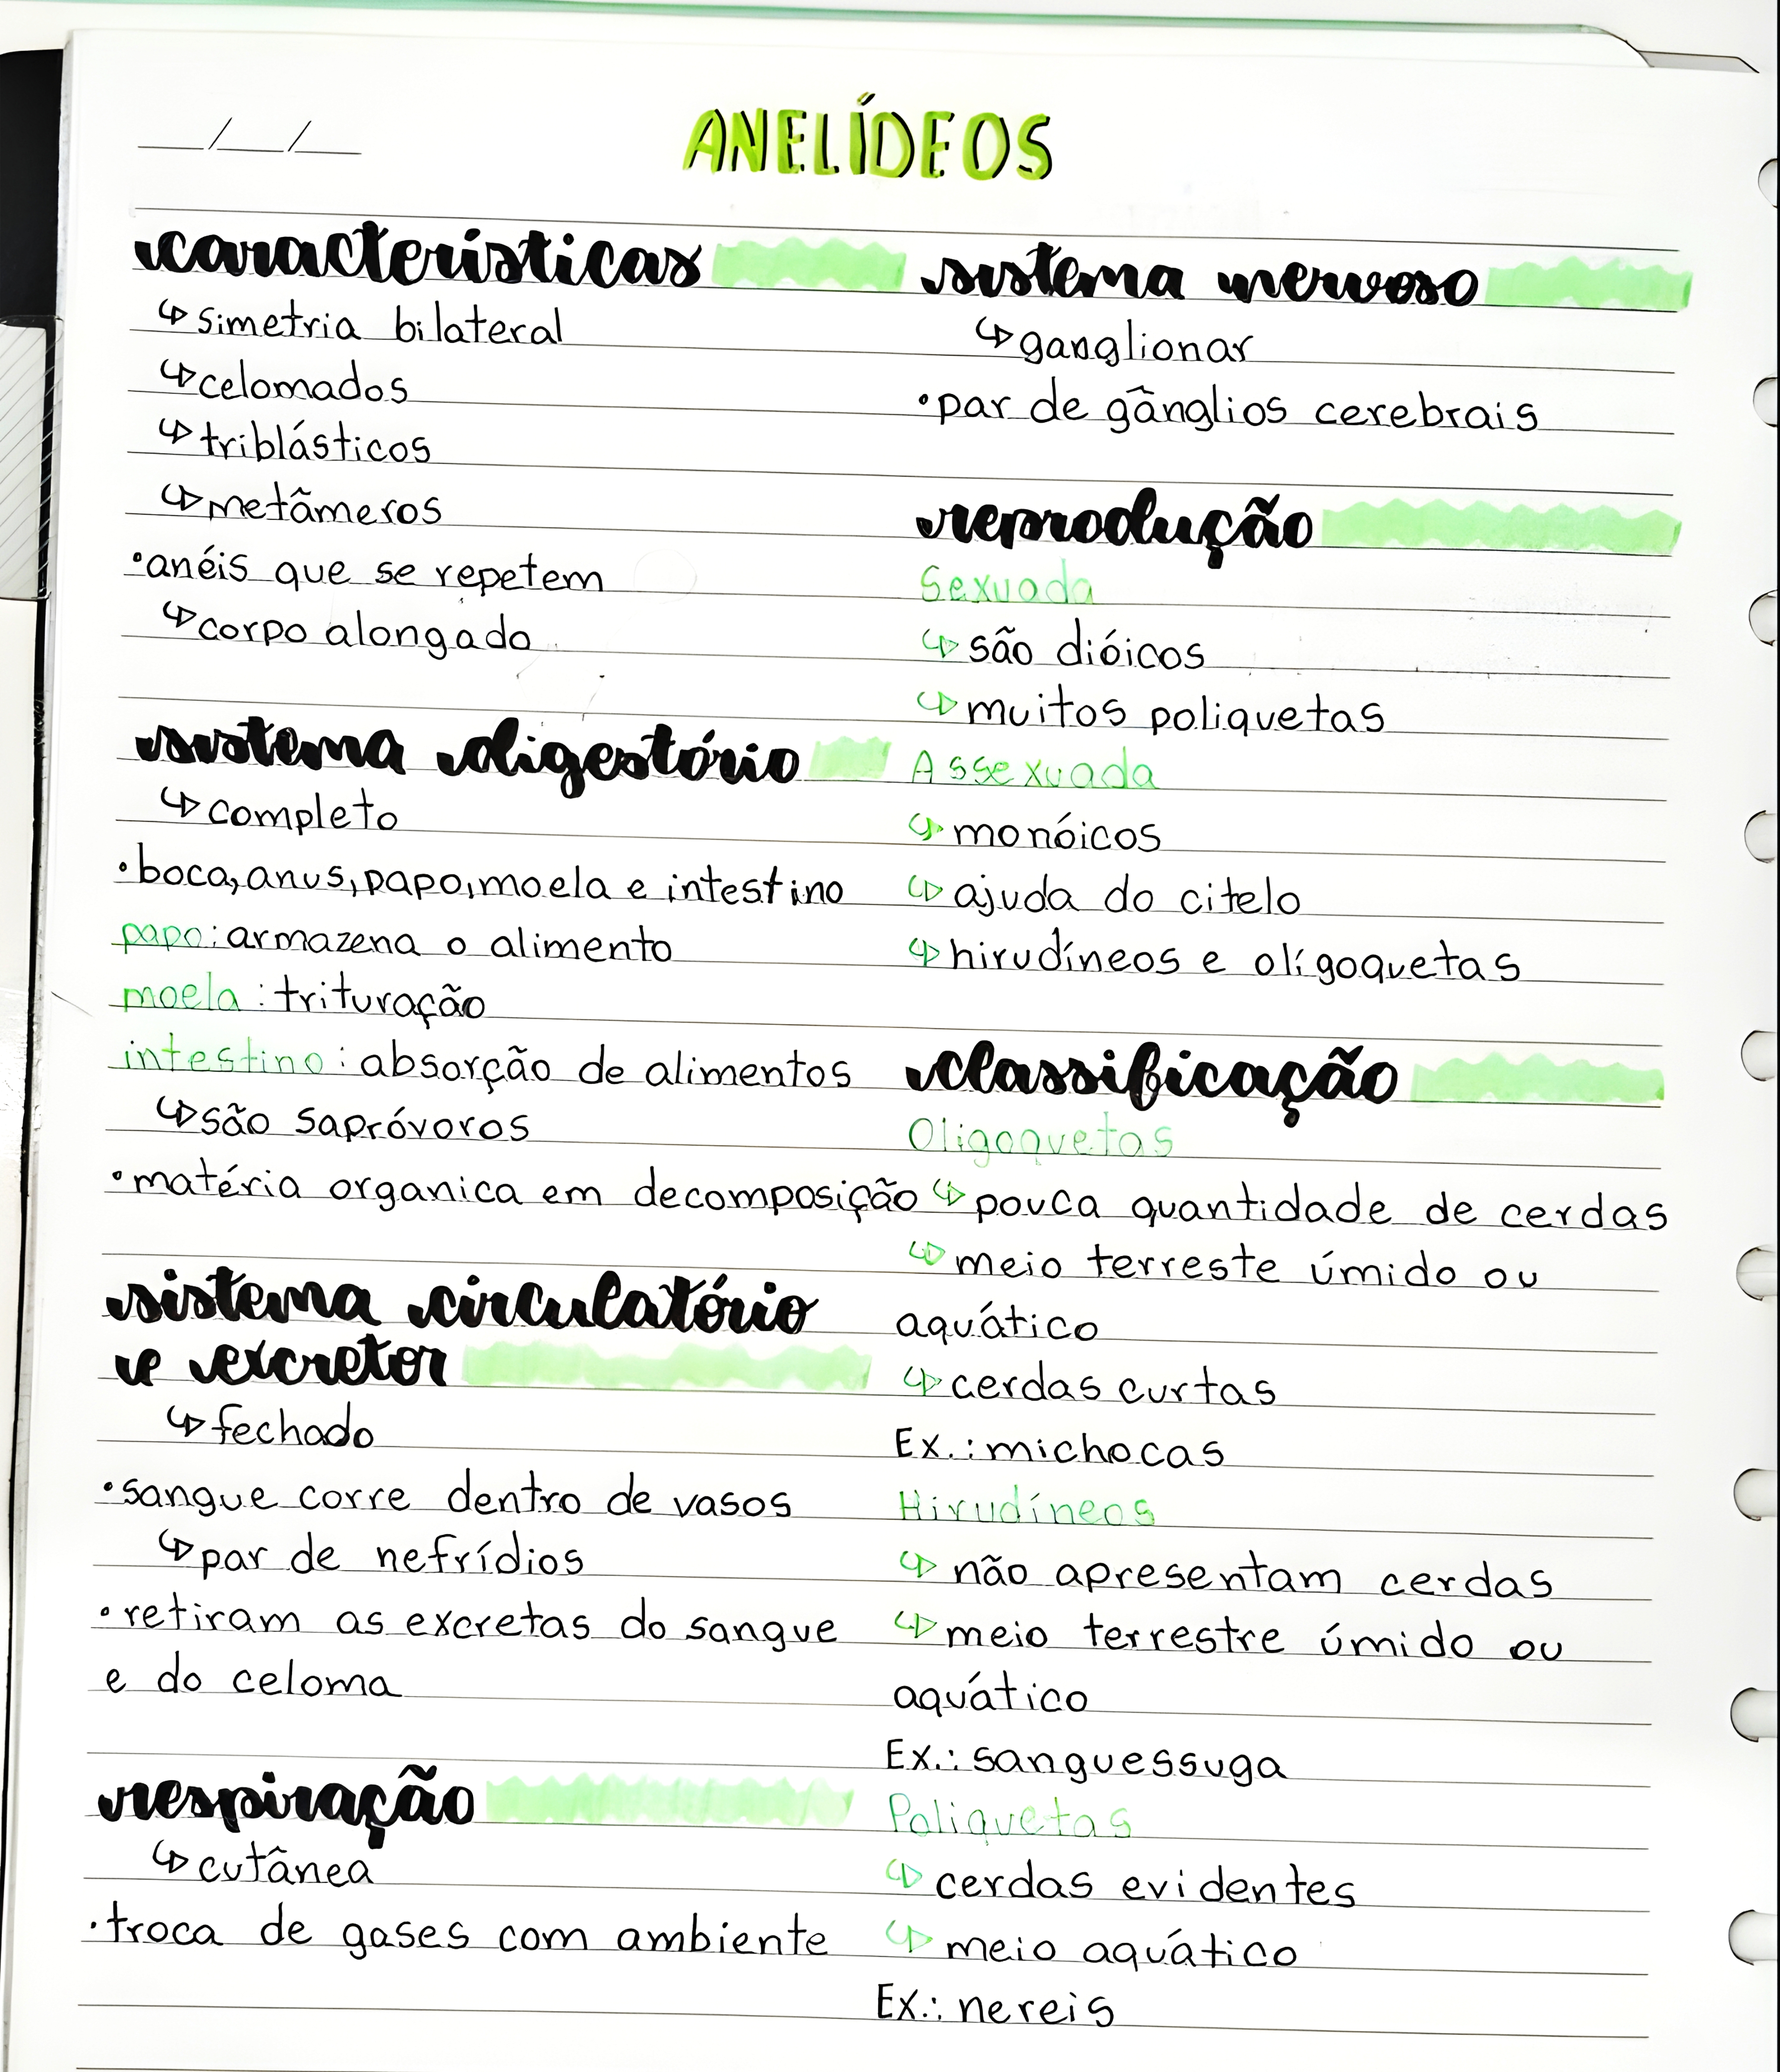 __/__/__
ANELÍDEOS
características
↳ simetria bilateral
↳ celomados
↳ triblásticos
↳ metâmeros
• anéis que se repetem
↳ corpo alongado
sistema digestório
↳ completo
• boca, anus, papo, moela e intestino
papo: armazena o alimento
moela: trituração
intestino: absorção de alimentos
↳ são sapróvoros
• matéria organica em decomposição
sistema circulatório
e excretor
↳ fechado
• sangue corre dentro de vasos
↳ par de nefrídios
• retiram as excretas do sangue
e do celoma
respiração
↳ cutânea
• troca de gases com ambiente
sistema nervoso
↳ ganglionar
• par de gânglios cerebrais
reprodução
Sexuada
↳ são dióicos
↳ muitos poliquetas
Assexuada
↳ monóicos
↳ ajuda do citelo
↳ hirudíneos e oligoquetas
classificação
Oligoquetas
↳ pouca quantidade de cerdas
↳ meio terreste úmido ou
aquático
↳ cerdas curtas
Ex.: michocas
Hirudíneos
↳ não apresentam cerdas
↳ meio terrestre úmido ou
aquático
Ex.: sanguessuga
Poliquetas
↳ cerdas evidentes
↳ meio aquático
Ex.: nereis